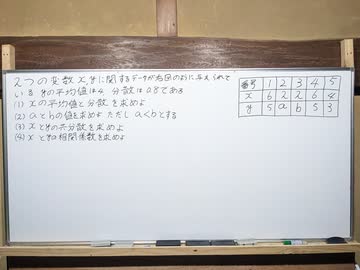 2つの変数x,yに関するデータが右図のように与えられて
いる yの平均値は4 分散は0.8である
(1) xの平均値と分散を求めよ
(2) aとbの値を求めよ ただし a<bとする
(3) xとyの共分散を求めよ
(4) xとyの相関係数を求めよ
番号 1 2 3 4 5
x 6 2 2 6 4
y 5 a b 5 3